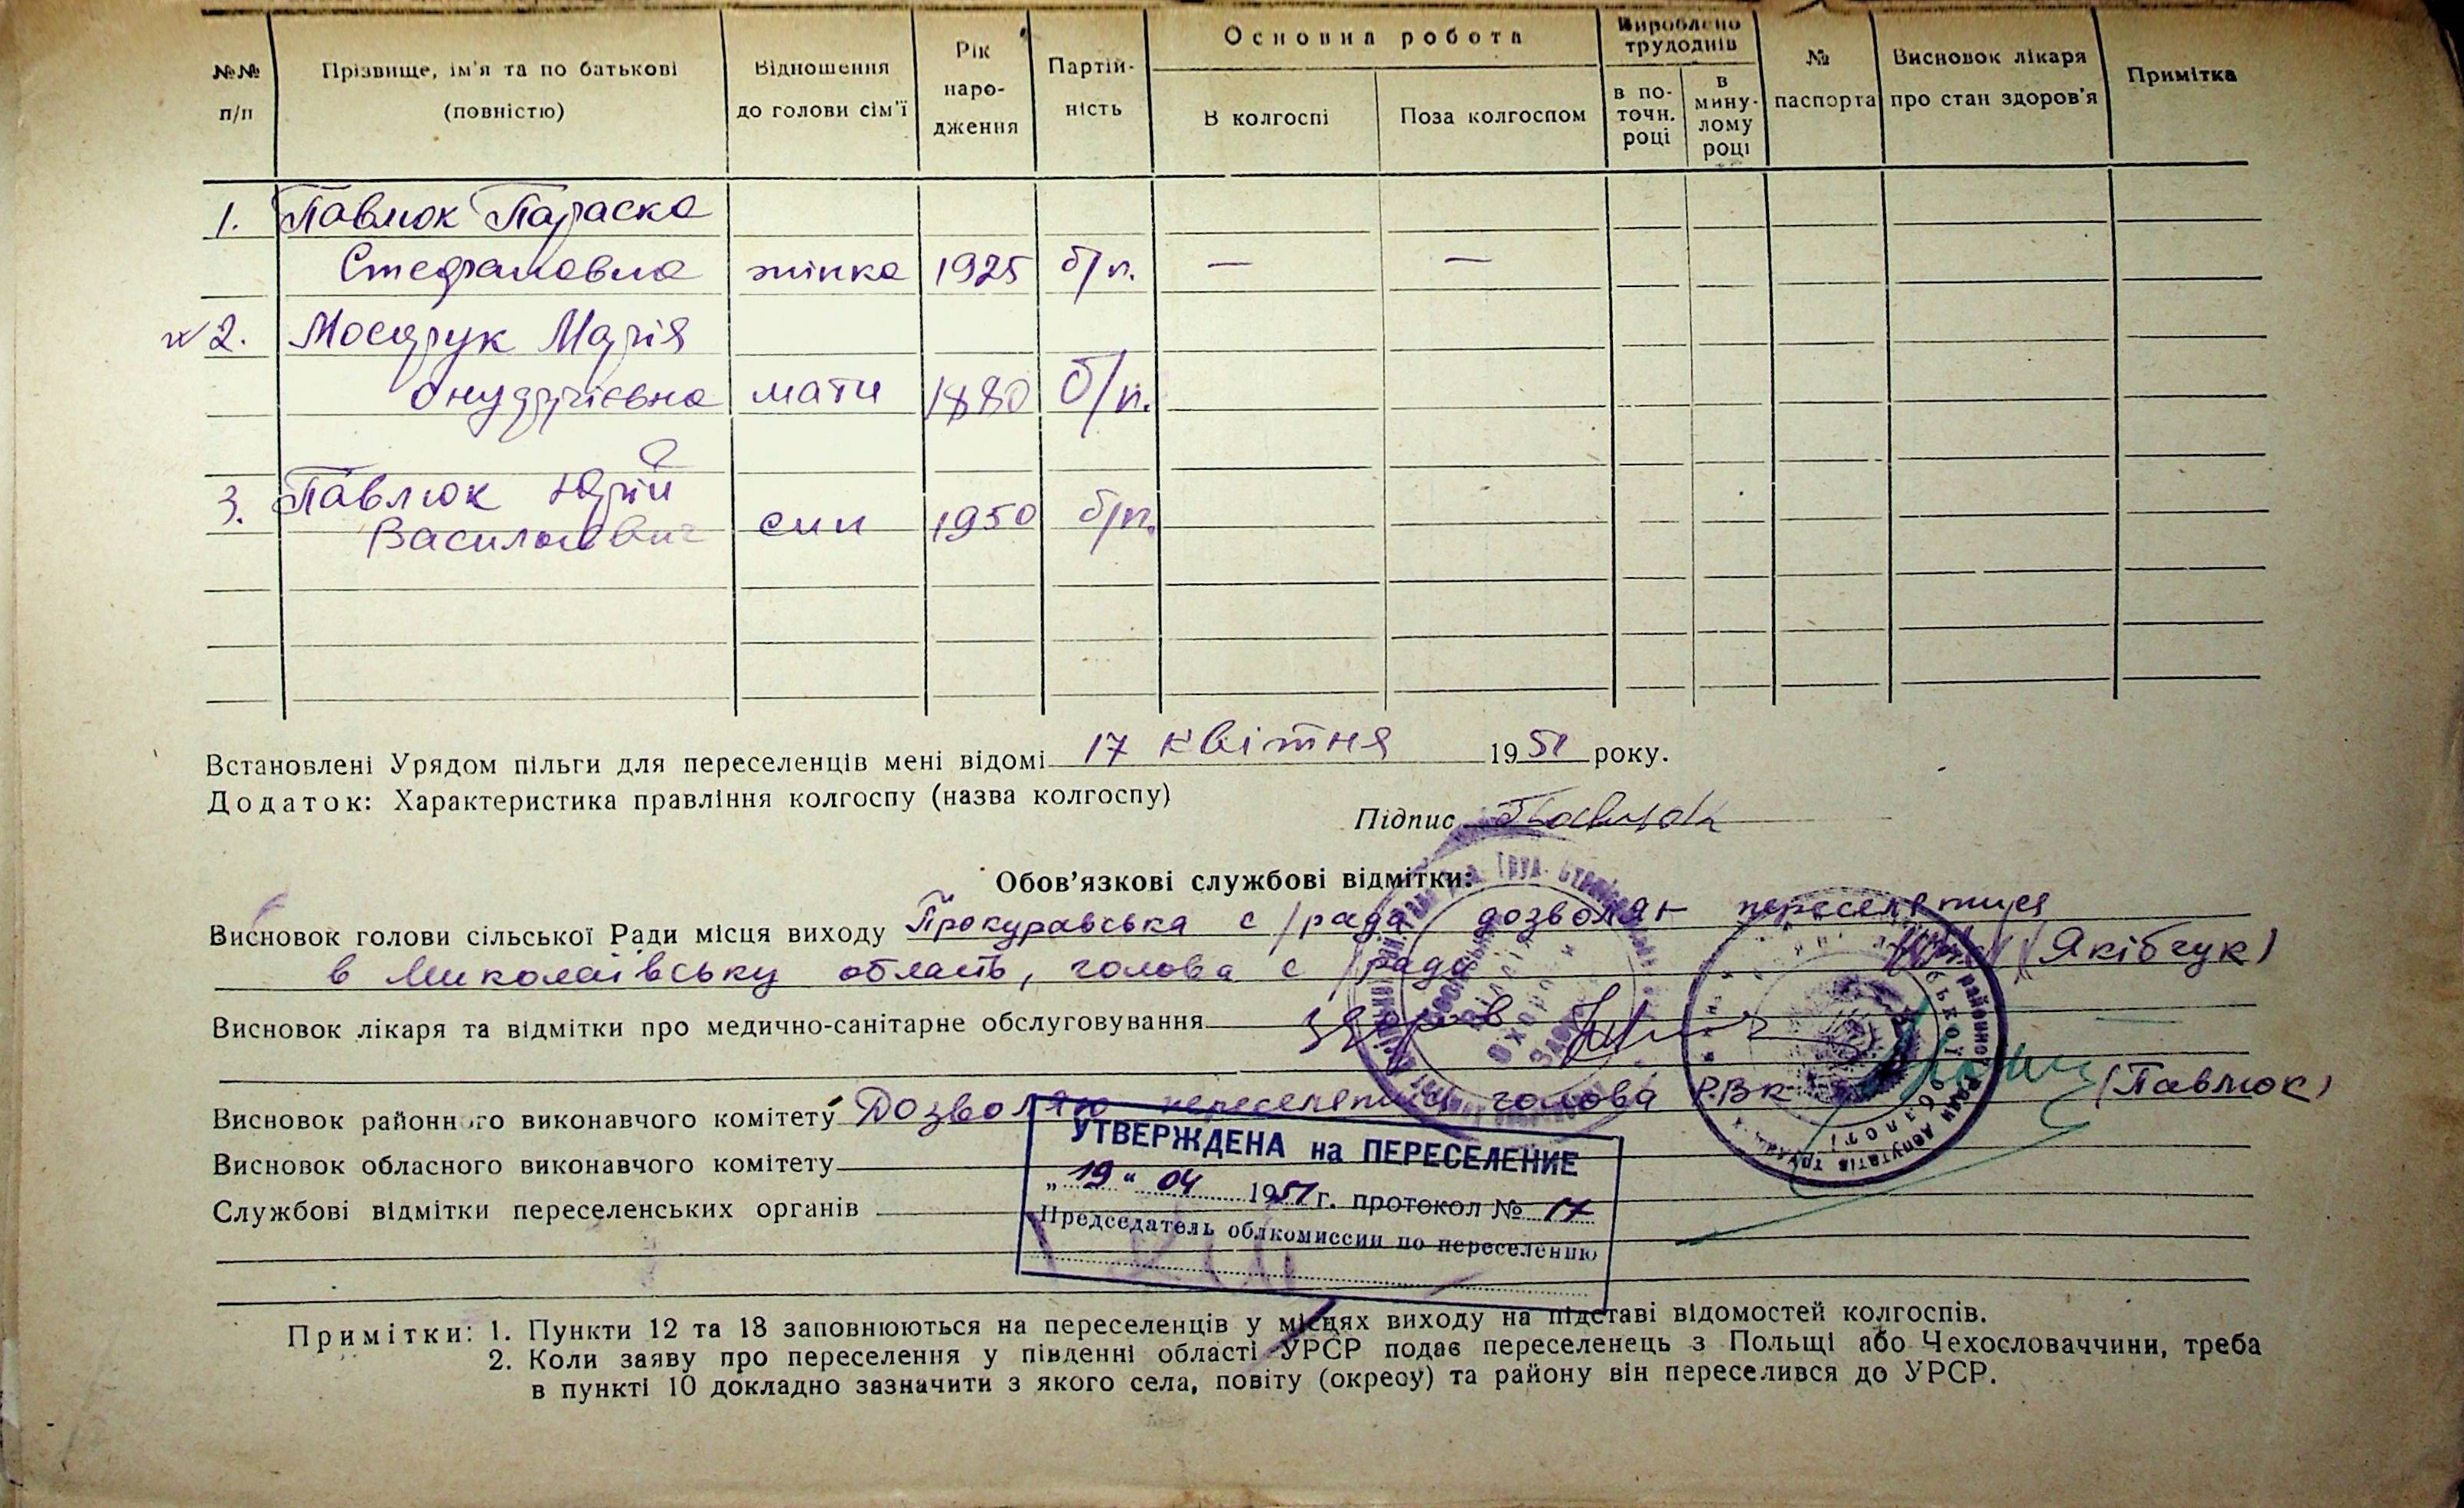 №№ п/п
Прізвище, ім'я та по батькові (повністю)
Відношення до голови сім'ї
Рік наро-дження
Партій-ність
Основна робота
В колгоспі
Поза колгоспом
Вироблено трудоднів
в по-точн. році
в мину-лому році
№ паспорта
Висновок лікаря про стан здоров'я
Примітка
1. Павлюк Параска
Стефановна жінка 1925 б/п. — —
2. Мосдрук Марія
Онуфріївна мати 1880 б/п.
3. Павлюк Юрій
Васильович син 1950 б/п.
Встановлені Урядом пільги для переселенців мені відомі 17 квітня 1951 року.
Додаток: Характеристика правління колгоспу (назва колгоспу)
Підпис Павлюк
Обов'язкові службові відмітки:
Висновок голови сільської Ради місця виходу Прокуравська с/рада дозволяє переселятися
в Миколаївську область, голова с/ради (Якібчук)
Висновок лікаря та відмітки про медично-санітарне обслуговування здоров
Висновок районного виконавчого комітету Дозволяю переселятись голова РВК (Павлюк)
УТВЕРЖДЕНА на ПЕРЕСЕЛЕНИЕ
Висновок обласного виконавчого комітету
„19“ 04 1951 г. протокол № 17
Службові відмітки переселенських органів
Председатель облкомиссии по переселению
Примітки: 1. Пункти 12 та 18 заповнюються на переселенців у місцях виходу на підставі відомостей колгоспів.
2. Коли заяву про переселення у південні області УРСР подає переселенець з Польщі або Чехословаччини, треба
в пункті 10 докладно зазначити з якого села, повіту (окресу) та району він переселився до УРСР.